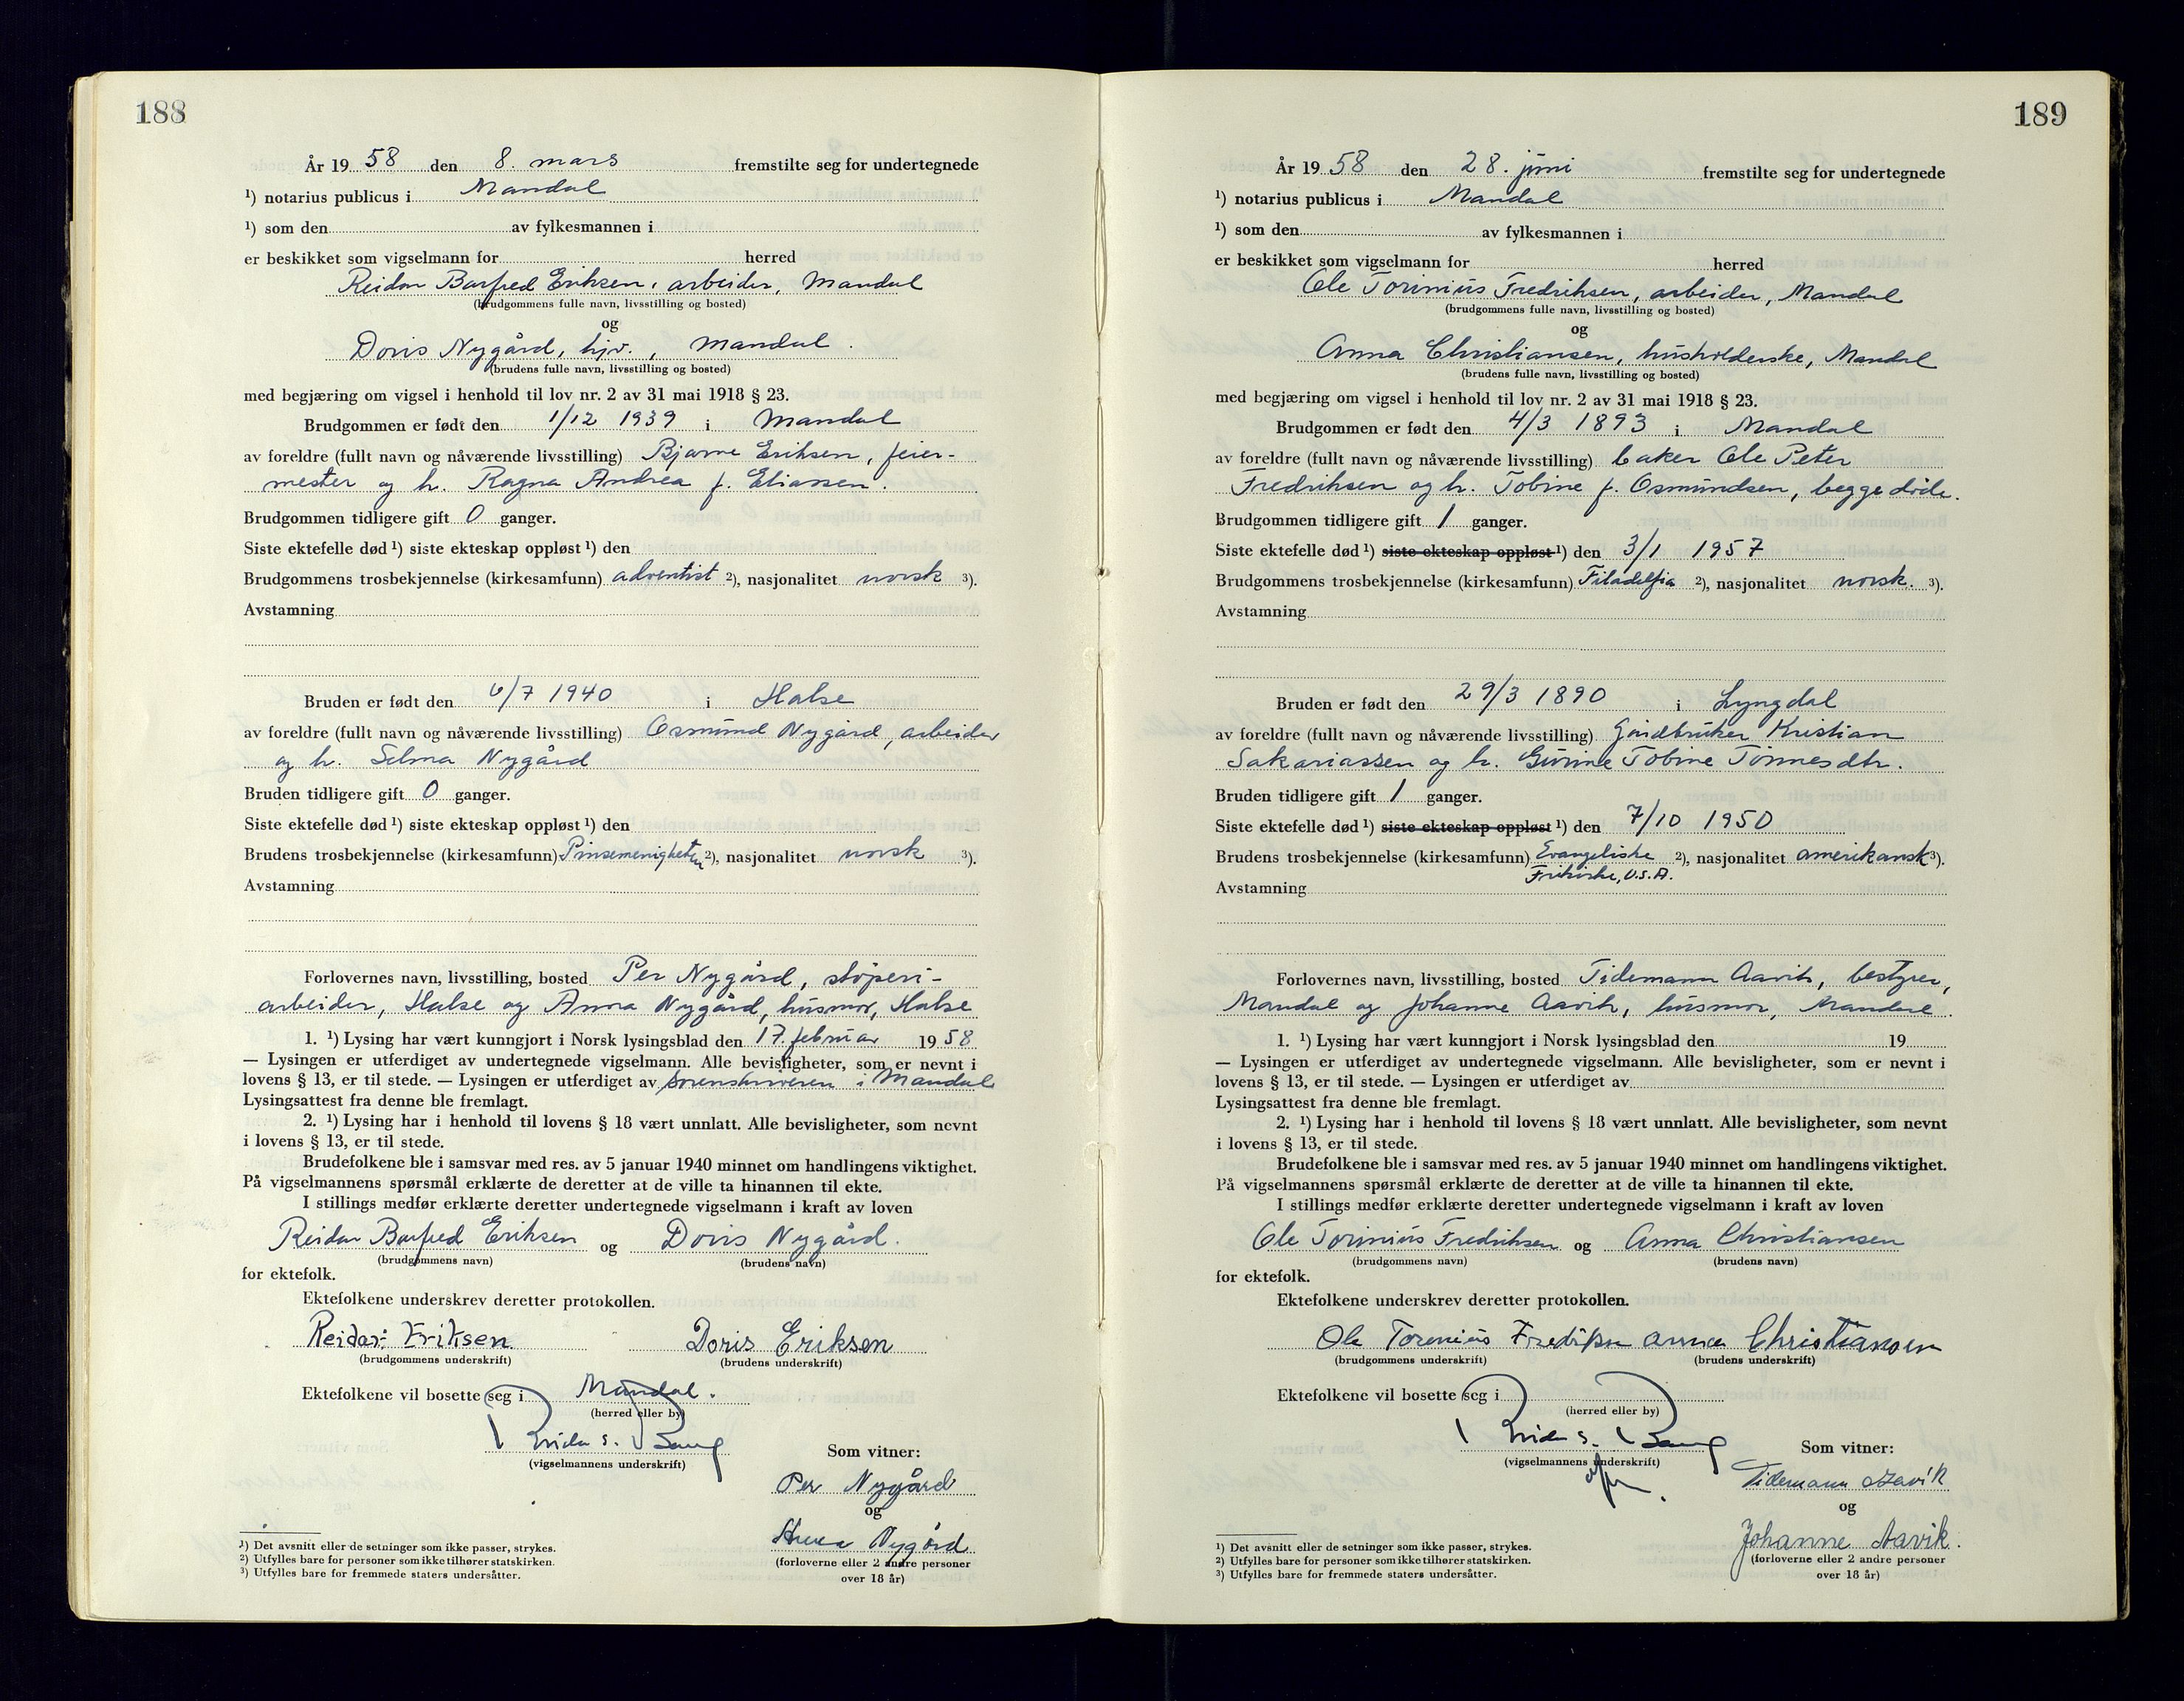 188
År 19 58 den 8. mars fremstilte seg for undertegnede
¹) notarius publicus i Mandal
¹) som den av fylkesmannen i
er beskikket som vigselmann for herred
Reidar Barfred Eriksen, arbeider, Mandal
(brudgommens fulle navn, livsstilling og bosted)
og
Doris Nygård, hjv., Mandal.
(brudens fulle navn, livsstilling og bosted)
med begjæring om vigsel i henhold til lov nr. 2 av 31 mai 1918 § 23.
Brudgommen er født den 1/12 1939 i Mandal
av foreldre (fullt navn og nåværende livsstilling) Bjarne Eriksen, feier-
mester og h. Ragna Andrea f. Eliassen.
Brudgommen tidligere gift 0 ganger.
Siste ektefelle død ¹) siste ekteskap oppløst ¹) den
Brudgommens trosbekjennelse (kirkesamfunn) adventist ²), nasjonalitet norsk ³).
Avstamning
Bruden er født den 6/7 1940 i Halse
av foreldre (fullt navn og nåværende livsstilling) Osmund Nygård, arbeider
og h. Selma Nygård
Bruden tidligere gift 0 ganger.
Siste ektefelle død ¹) siste ekteskap oppløst ¹) den
Brudens trosbekjennelse (kirkesamfunn) Pinsemenigheten ²), nasjonalitet norsk ³).
Avstamning
Forlovernes navn, livsstilling, bosted Per Nygård, støperi-
arbeider, Halse og Anna Nygård, husmor, Halse
1. ¹) Lysing har vært kunngjort i Norsk lysingsblad den 17. februar 19 58
— Lysingen er utferdiget av undertegnede vigselmann. Alle bevisligheter, som er nevnt i
lovens § 13, er til stede. — Lysingen er utferdiget av sorenskriveren i Mandal
Lysingsattest fra denne ble fremlagt.
2. ¹) Lysing har i henhold til lovens § 18 vært unnlatt. Alle bevisligheter, som nevnt
i lovens § 13, er til stede.
Brudefolkene ble i samsvar med res. av 5 januar 1940 minnet om handlingens viktighet.
På vigselmannens spørsmål erklærte de deretter at de ville ta hinannen til ekte.
I stillings medfør erklærte deretter undertegnede vigselmann i kraft av loven
Reidar Barfred Eriksen og Doris Nygård.
(brudgommens navn) (brudens navn)
for ektefolk.
Ektefolkene underskrev deretter protokollen.
Reidar Eriksen Doris Eriksen
(brudgommens underskrift) (brudens underskrift)
Ektefolkene vil bosette seg i Mandal.
(herred eller by)
(vigselmannens underskrift)
Som vitner:
Per Nygård
og
Nygård
(forloverne eller 2 andre personer
over 18 år)
¹) Det avsnitt eller de setninger som ikke passer, strykes.
²) Utfylles bare for personer som ikke tilhører statskirken.
³) Utfylles bare for fremmede staters undersåtter.
189
År 19 58 den 28. juni fremstilte seg for undertegnede
¹) notarius publicus i Mandal
¹) som den av fylkesmannen i
er beskikket som vigselmann for herred
Ole Torinius Fredriksen, arbeider, Mandal
(brudgommens fulle navn, livsstilling og bosted)
og
Anna Christiansen, husholderske, Mandal
(brudens fulle navn, livsstilling og bosted)
med begjæring om vigsel i henhold til lov nr. 2 av 31 mai 1918 § 23.
Brudgommen er født den 4/3 1893 i Mandal
av foreldre (fullt navn og nåværende livsstilling) baker Ole Peter
Fredriksen og h. Tobine f. Osmundsen, begge døde.
Brudgommen tidligere gift 1 ganger.
Siste ektefelle død ¹) siste ekteskap oppløst ¹) den 3/1 1957
Brudgommens trosbekjennelse (kirkesamfunn) Filadelfia ²), nasjonalitet norsk. ³).
Avstamning
Bruden er født den 29/3 1890 i Lyngdal
av foreldre (fullt navn og nåværende livsstilling) Gårdbruker Kristian
Sakariassen og h. Gurine Tobine Tønnesdtr.
Bruden tidligere gift 1 ganger.
Siste ektefelle død ¹) siste ekteskap oppløst ¹) den 7/10 1950
Brudens trosbekjennelse (kirkesamfunn) Evangeliske ²), nasjonalitet amerikansk ³).
Frikirke, U.S.A.
Avstamning
Forlovernes navn, livsstilling, bosted Tidemann Aavik, bestyrer,
Mandal og Johanne Aavik, husmor, Mandal.
1. ¹) Lysing har vært kunngjort i Norsk lysingsblad den 19
— Lysingen er utferdiget av undertegnede vigselmann. Alle bevisligheter, som er nevnt i
lovens § 13, er til stede. — Lysingen er utferdiget av
Lysingsattest fra denne ble fremlagt.
2. ¹) Lysing har i henhold til lovens § 18 vært unnlatt. Alle bevisligheter, som nevnt
i lovens § 13, er til stede.
Brudefolkene ble i samsvar med res. av 5 januar 1940 minnet om handlingens viktighet.
På vigselmannens spørsmål erklærte de deretter at de ville ta hinannen til ekte.
I stillings medfør erklærte deretter undertegnede vigselmann i kraft av loven
Ole Torinius Fredriksen og Anna Christiansen
(brudgommens navn) (brudens navn)
for ektefolk.
Ektefolkene underskrev deretter protokollen.
Ole Torenius Anna Christiansen
(brudgommens underskrift) (brudens underskrift)
Ektefolkene vil bosette seg i
(herred eller by)
(vigselmannens underskrift)
Som vitner:
Tidemann Aavik
og
Johanne Aavik.
(forloverne eller 2 andre personer
over 18 år)
¹) Det avsnitt eller de setninger som ikke passer, strykes.
²) Utfylles bare for personer som ikke tilhører statskirken.
³) Utfylles bare for fremmede staters undersåtter.